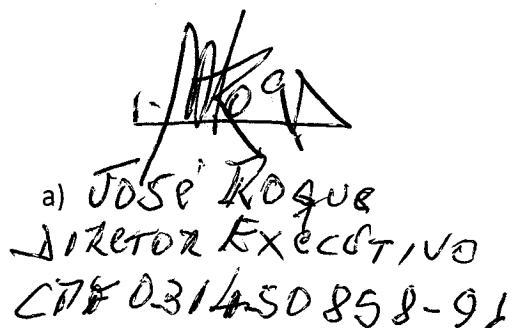 a) José Roque
DIRETOR EXECUTIVO
CPF 031450858-91